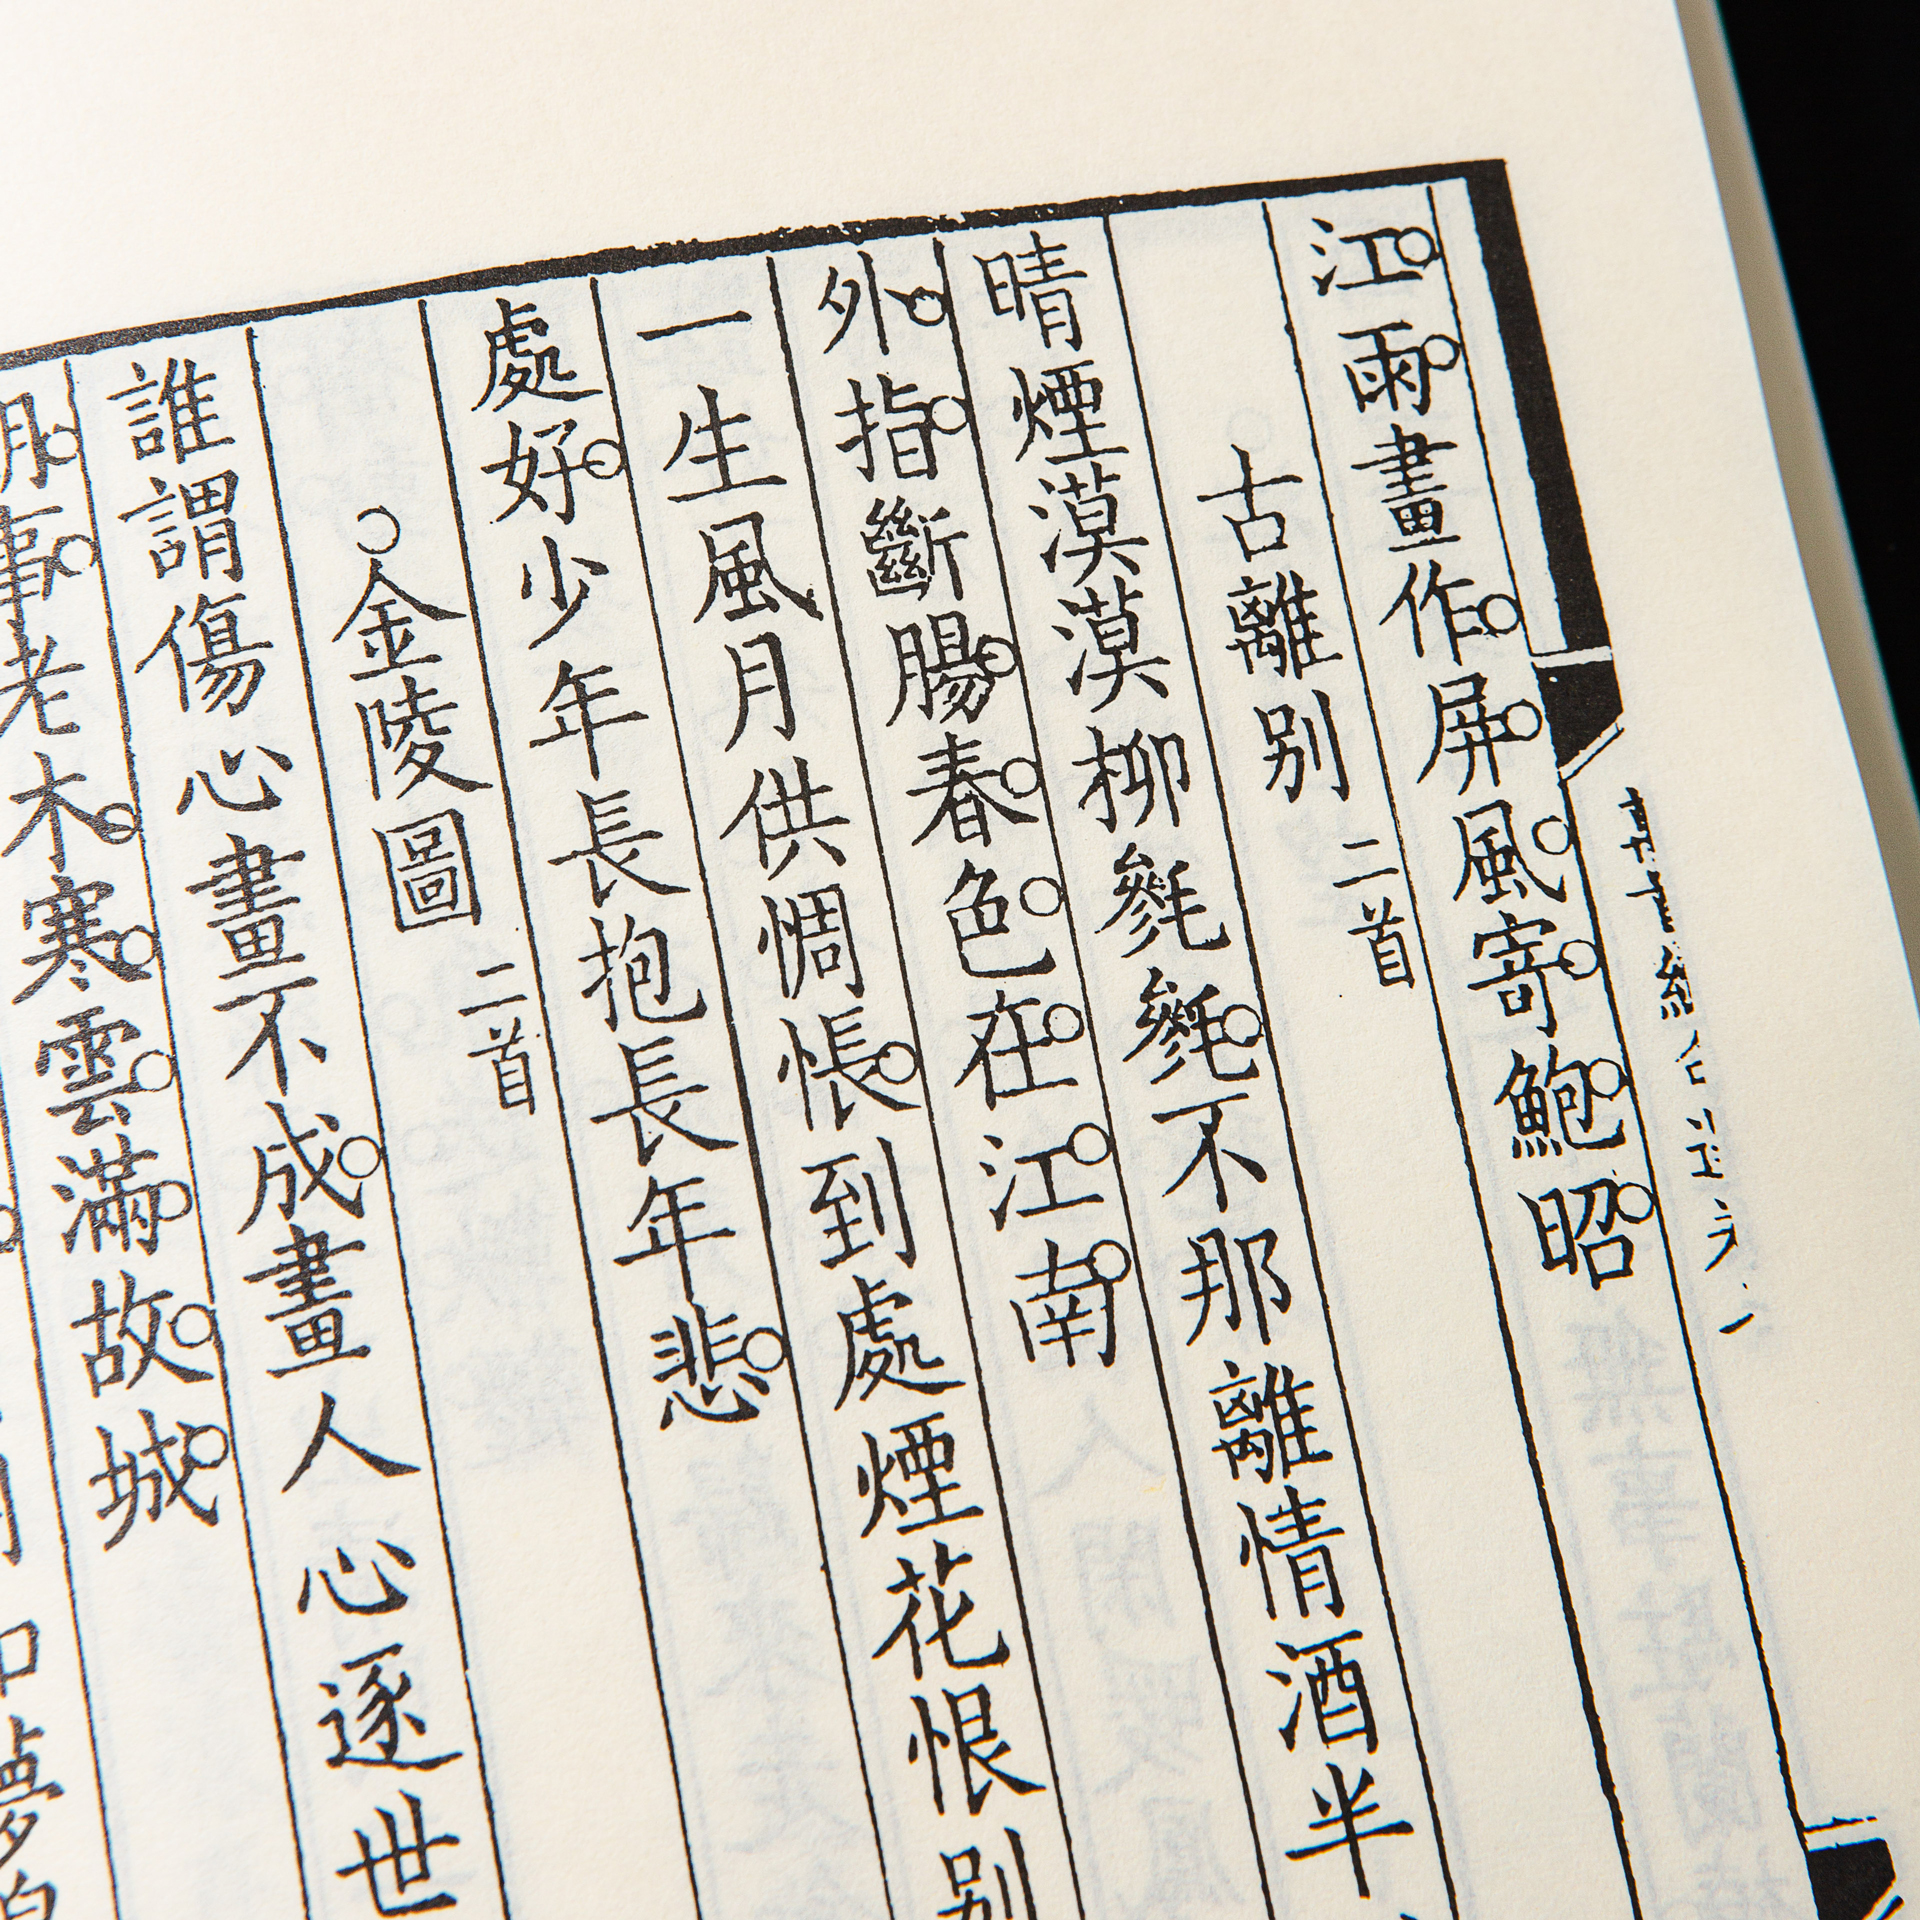 江雨畫作屏風寄鮑昭
古離别二首
晴煙漠漠柳毿毿不那離情酒半
外指斷腸春色在江南
一生風月供惆悵到處煙花恨别
處好少年長抱長年悲
金陵圖二首
誰謂傷心畫不成畫人心逐世
事老木寒雲滿故城